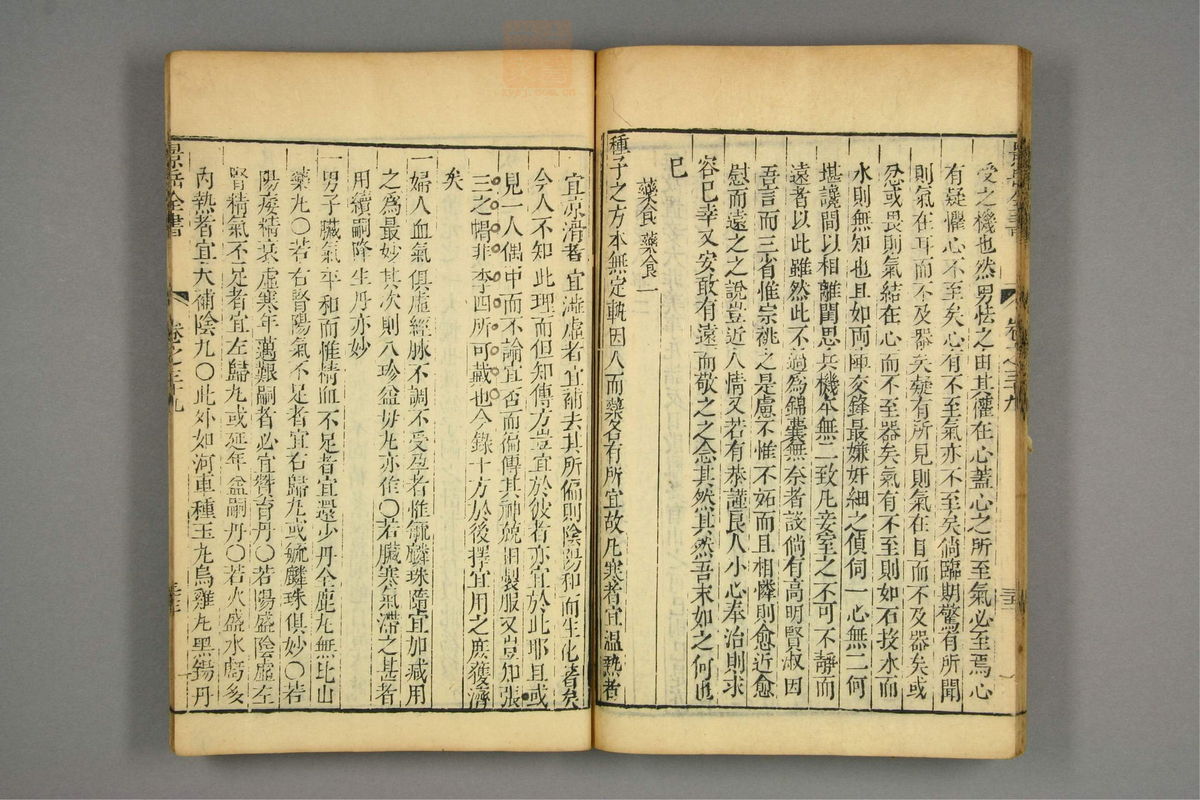 受之機也然男怯之由其僱在心蓋心之所至氣必至焉心
有疑懼心不至矣心有不至氣亦不至矣倘臨期驚有所聞
則氣在耳而不及器矣疑有所見則氣在目而不及器矣或
忿或畏則氣結在心而不至器矣氣有不至則如石投水而
水則無知也且如兩陣交鋒最嫌奸細之偵伺一心無二何
堪讒間以相離閨思兵機本無二致凡妾室之不可不靜而
遠者以此雖然此不過為錦囊無奈者談倘有高明賢淑因
吾言而三省惟宗祧之是慮不惟不妬而且相憐則愈近愈
慰而遠之之說豈近人情又若有恭謹良人小心奉治則求
容巳幸又安敢有遠而敬之之念其然其然吾末如之何也
巳
藥食 藥食一
種子之方本無定軌因人而藥各有所宜故凡寒者宜溫熱者
宜涼滑者宜濇虛者宜補去其所偏則陰陽和而生化著矣
今人不知此理而但知傳方豈宜於彼者亦宜於此耶且或
見一人偶中而不論宜否而徧傳其神競相製服又豈知張
三之帽非李四所可戴也今錄十方於後擇宜用之庶獲濟
矣
一婦人血氣俱虛經脉不調不受孕者惟毓麟珠隨宜加減用
之爲最妙其次則八珍益母丸亦佳〇若臟寒氣滯之甚者
用續嗣降生丹亦妙
一男子臟氣平和而惟精血不足者宜還少丹全鹿丸無比山
藥丸〇若右腎陽氣不足者宜右歸丸或毓麟珠俱妙〇若
陽痿精衰虛寒年邁艱嗣者必宜贊育丹〇若陽盛陰虛左
腎精氣不足者宜左歸丸或延年益嗣丹〇若火盛水虧多
內熱者宜大補陰丸〇此外如河車種玉丸烏雞丸黑錫丹
景岳全書
卷之三十九